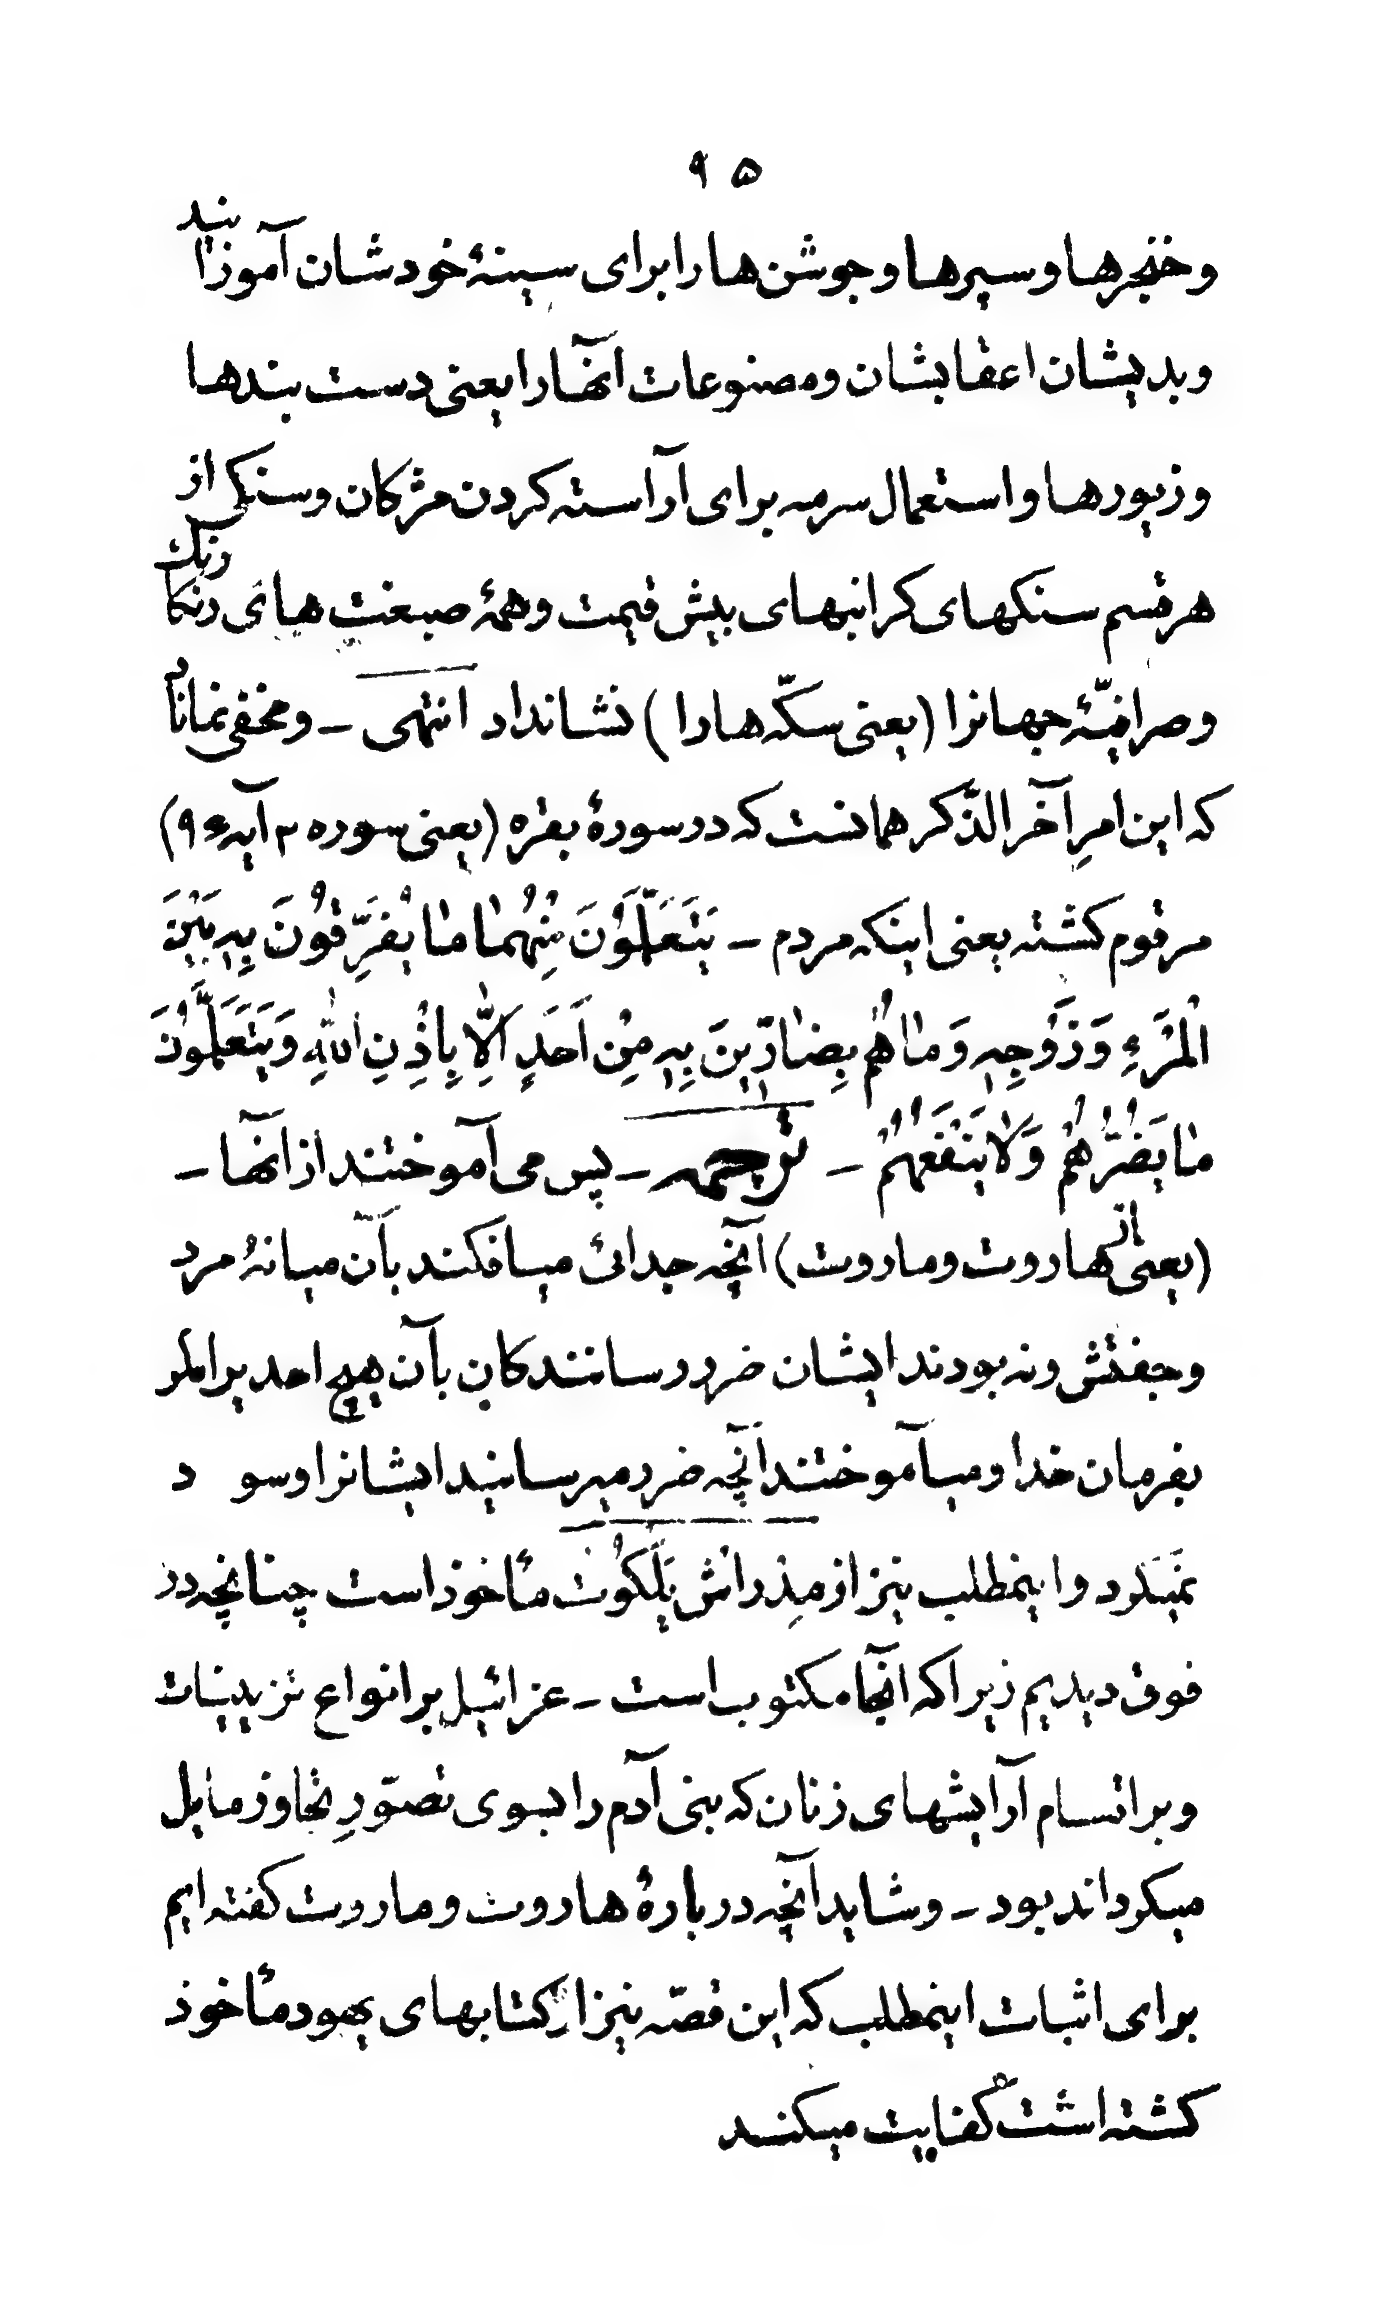 ۹۵
وخنجرها وسپرها وجوشن‌ها را برای سینهٔ خودشان آموزانید
وبدیشان اعقابشان ومصنوعات آنها را یعنی دست بندها
وزیورها واستعمال سرمه برای آراسته کردن مژکان وسنکی از
هر قسم سنکهای کرانبهای بیش قیمت وهمهٔ صبغت های رنکارنک
وصرافیّهٔ جهانرا (یعنی سکّه هارا) نشانداد انتهی — ومخفی نماناد
که این امرِ آخر الذّکر همانست که در سورهٔ بقره (یعنی سوره ۲ آیه ۹۶)
مرقوم کشته یعنی اینکه مردم — یَتَعَلَّمُونَ مِنْهُمٰا مٰا یُفَرِّقُونَ بِهِ بَیْنَ
الْمَرْءِ وَزَوْجِهِ وَمٰا هُمْ بِضٰارِّینَ بِهِ مِنْ اَحَدٍ اِلّٰا بِاِذْنِ اللّٰهِ وَیَتَعَلَّمُونَ
مٰا یَضُرُّهُمْ وَلٰا یَنْفَعُهُمْ — ترجمه — پس می آموختند از آنها —
(یعنی از هاروت وماروت) آنچه جدائی میافکند بآن میانهٔ مرد
وجفتش ونه بودند ایشان ضرر رسانندکان بآن هیچ احد برا مکر
بفرمان خدا ومیآموختند آنچه ضرر میرسانید ایشانرا وسو د
نمیکرد واینمطلب نیز از مِدراش یَلکُوت مأخوذ است چنانچه در
فوق دیدیم زیرا که آنجا مکتوب است — عزائیل بر انواع تزیینات
وبر اقسام آرایشهای زنان که بنی آدم را بسوی تصوّرِ تجاوز مایل
میکرداند بود — وشاید آنچه در بارهٔ هاروت وماروت کفته ایم
برای اثبات اینمطلب که این قصّه نیز از کتابهای یهود مأخوذ
کشته است کفایت میکند